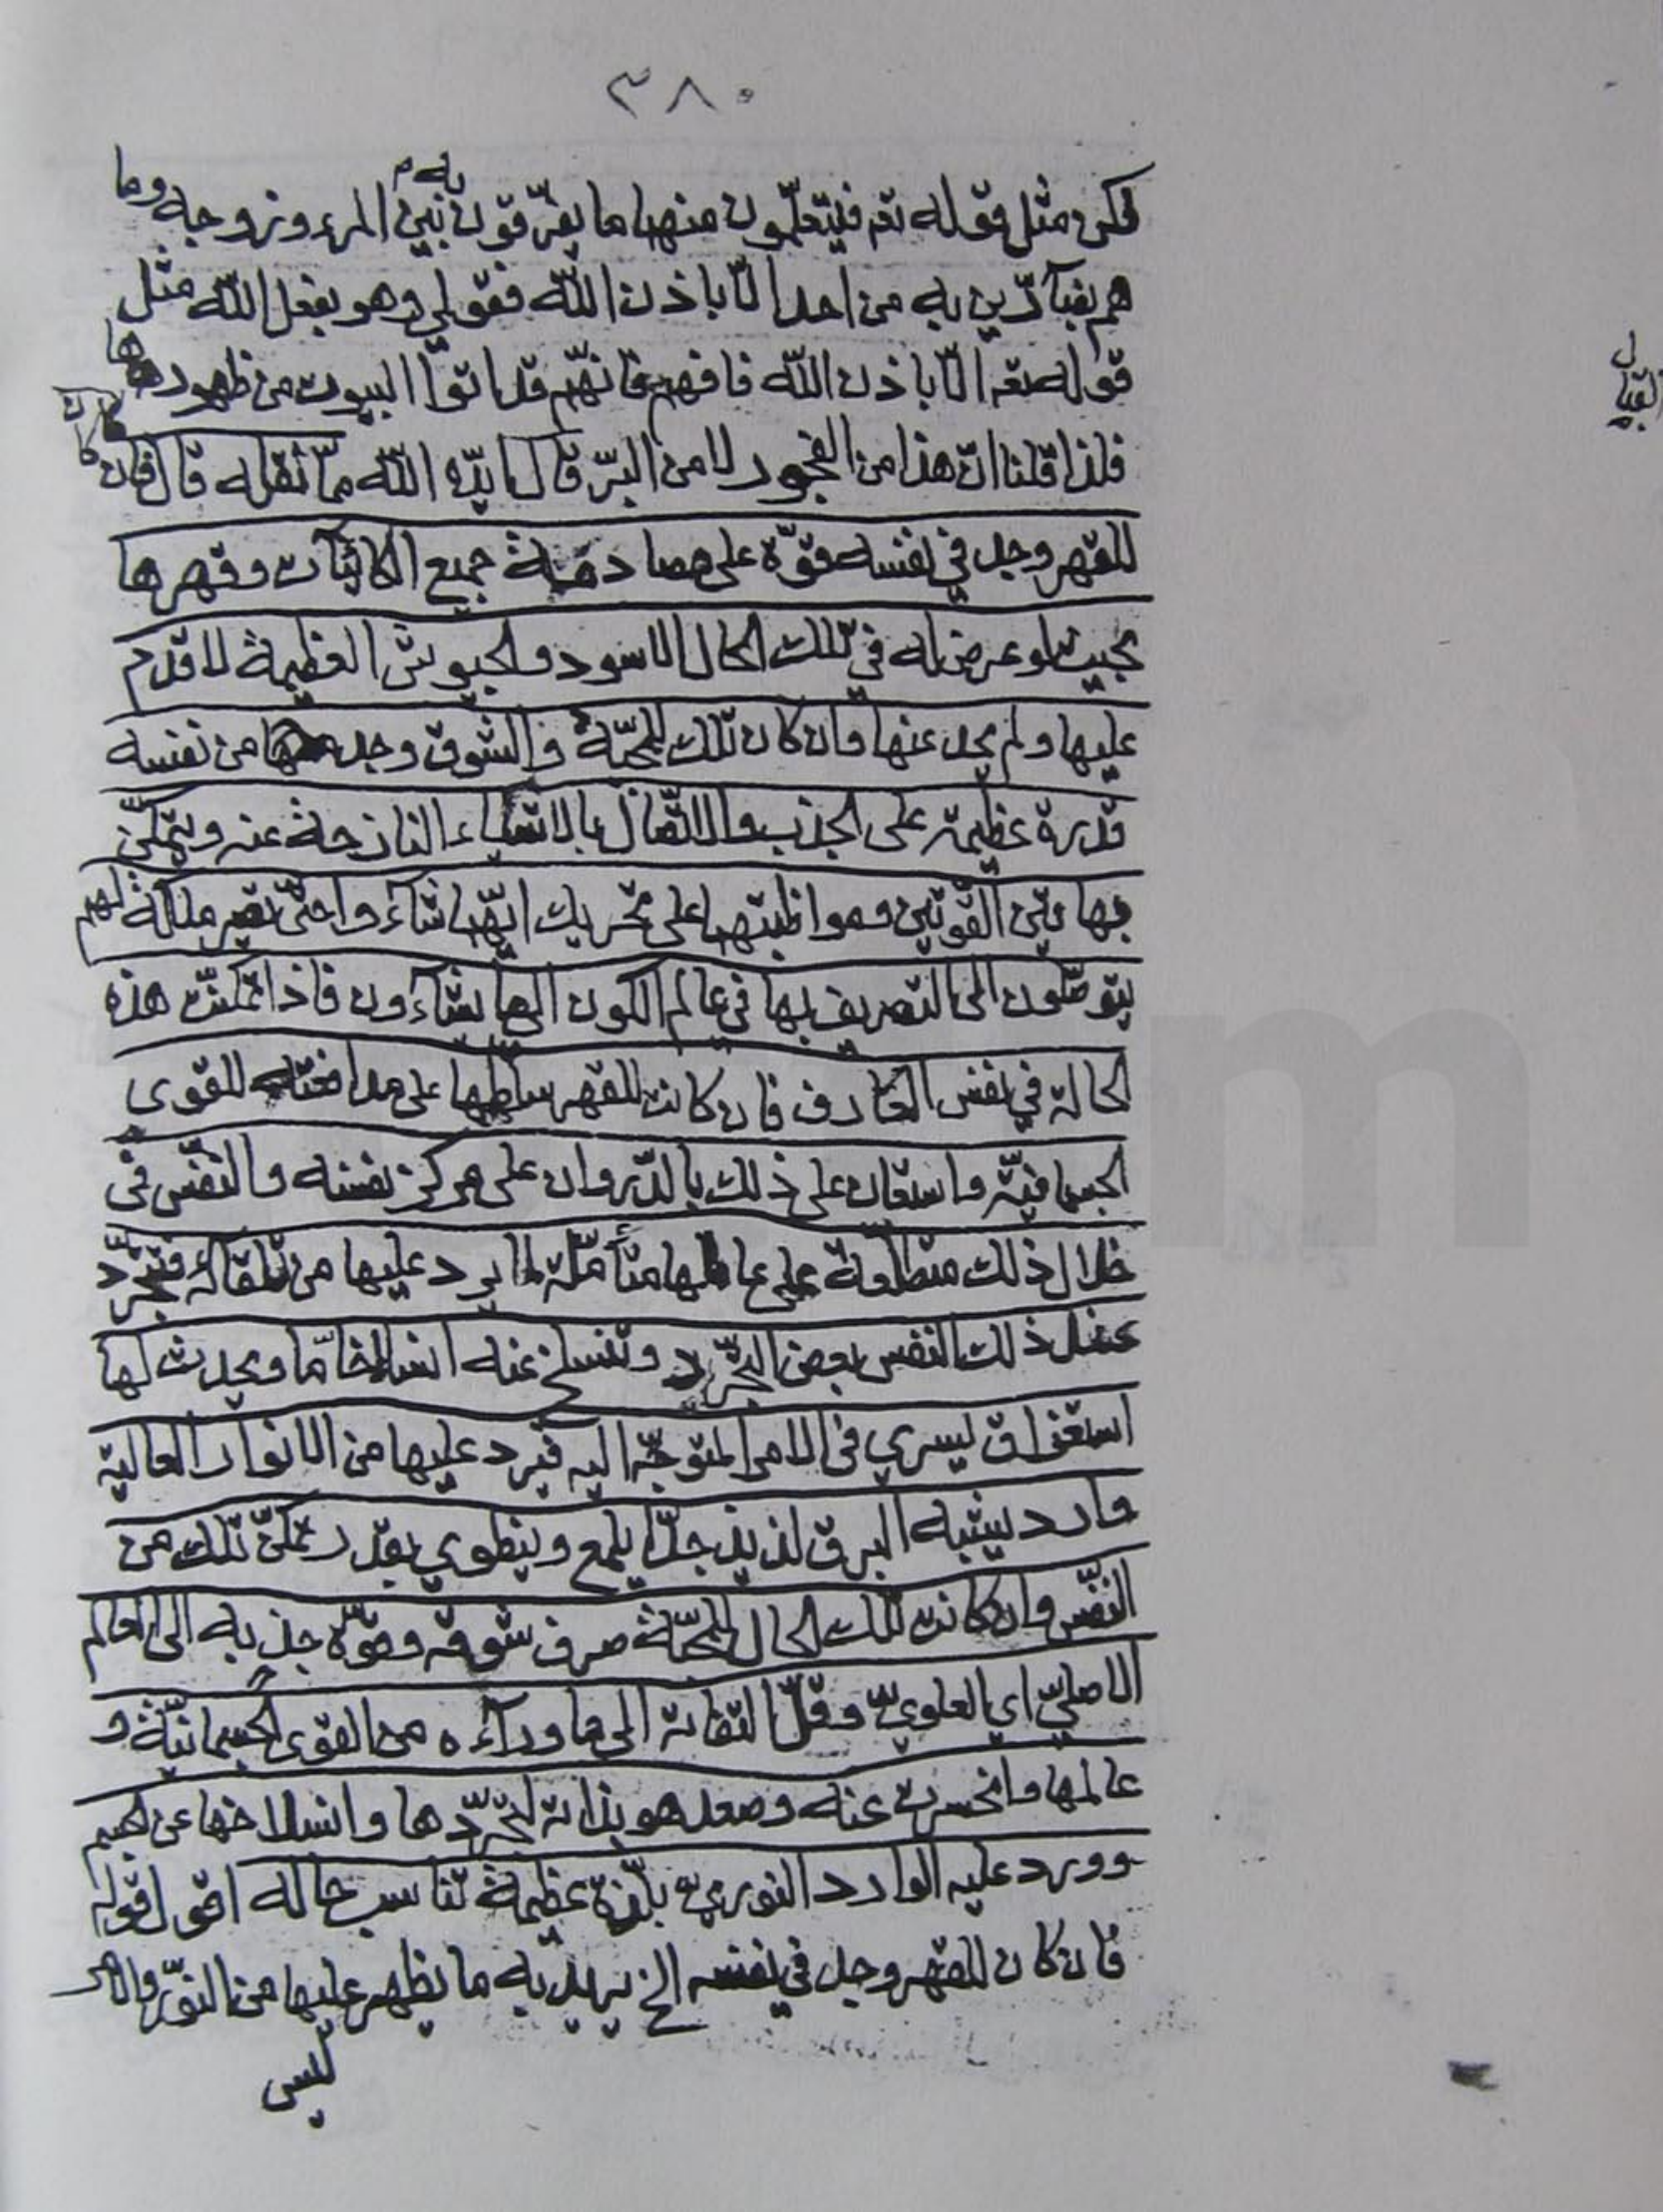 ٣٨٠
لكن مثل قوله تعم فيتعلّمون منهما ما يفرّقون به بين المرء وزوجه وما
هم بضآرّين به من احد الّا باذن اللّه فقولي وهو بفعل اللّه مثل
قوله تعم الّا باذن اللّه فافهم فانّهم قد اتوا البيوت من ظهورها
فلذا قلنا انّ هذا من الفجور لا من البرّ قال ايّده اللّه ممّا نقله قال فان كان
للقهر وجد في نفسه قوّة على مصادمة جميع الكائنات وقهرها
بحيث لو عرض له في تلك الحال الاسود والجيوش العظيمة لاقدم
عليها ولم يحد عنها وان كان تلك للمحبّة والشوق وجد من نفسه
قدرة عظيمة على الجذب والاتّصال بالاشياء النازحة عنه ويتمكّن
بهاتين القوّتين ومواظبتهما على تحريك ايّهما شاءوا حتّى تصير ملكة لهم
يتوصّلون الى التصريف بها في عالم الكون الى ما يشاءون فاذا تمكّنت هذه
الحالة في نفس العارف فان كانت للقهر سلّطها على مدافعته للقوى
الجسمانيّة واستعان على ذلك بالدّوران على مركز نفسه والتنفّس في
خلال ذلك متطلّعة على عالمها متأمّلة لما يرد عليها من تلقائه فتتجرّد
عند ذلك النفس بعض التجرّد وتنسلخ عنه انسلاخا مّا ويحدث لها
استغراق ليسري في الامر المتوجّه اليه فيرد عليها من الانوار العالية
وارد يشبه البرق لذيذ جدّا يلمع وينطوي بقدر تمكّن تلك من
النفس وان كانت تلك الحال للمحبّة صرف شوقه وقوّة جذبه الى العالم
الاصليّ اي العلويّ وقلّ التفاته الى ما وراءه من القوى الجسمانيّة و
عالمها وانحسرت عنه وصعد هو بذاته لتجرّدها وانسلاخها عن
وورد عليه الوارد النوريّ بلذّة عظيمة تناسب حاله اقول قوله
فان كان للقهر وجد في نفسه الخ يريد به ما يظهر عليها من
ليس